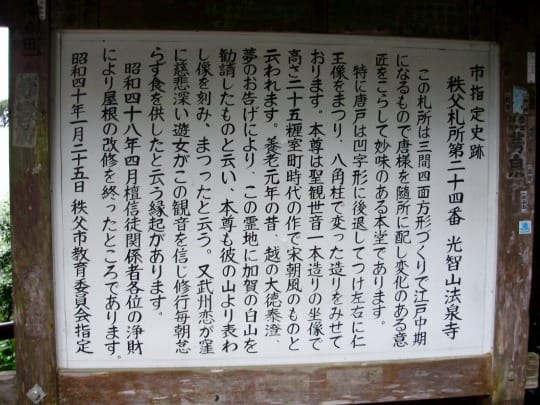 市指定史跡
秩父札所第二十四番　光智山法泉寺
この札所は三間四面方形づくりで江戸中期
になるもので唐様を随所に配し変化のある意
匠をこらして妙味のある本堂であります。
特に唐戸は凹字形に後退してつけ左右に仁
王像をまつり、八角柱で変った造りをみせて
おります。本尊は聖観世音一本造りの坐像で
高さ二十五糎室町時代の作で宋朝風のものと
云われます。養老元年の昔、越の大徳泰澄、
夢のお告げにより、この霊地に加賀の白山を
勧請したものと云い、本尊も彼の山より表わ
し像を刻み、まつったと云う。又武州恋が窪
に慈悲深い遊女がこの観音を信じ修行毎朝怠
らず食を供したと云う縁起があります。
昭和四十八年四月檀信徒関係者各位の浄財
により屋根の改修を終ったところであります。
昭和四十年一月二十五日　秩父市教育委員会指定